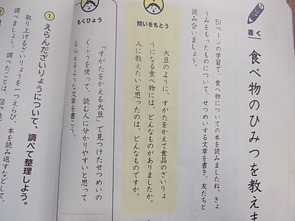 書く
食べ物のひみつを教えま
51ページの学習で、食べ物についての本を読みましたね。きょ
うみをもったものについて、せつめいする文章を書き、友だちと
読み合いましょう。
問いをもとう
大豆のように、すがたをかえて食品のざいりょ
うになる食べ物には、どんなものがありましたか。
人に教えたいと思ったのは、どんなものですか。
もくひょう
「すがたをかえる大豆」で見つけたせつめいの
くふうを使って、読む人に分かりやすいと思って
もらえるような文章を書こう。
1 えらんだざいりょうについて、調べて整理しよう。
取り上げるざいりょうを一つえらび、本を読んで
調べましょう。